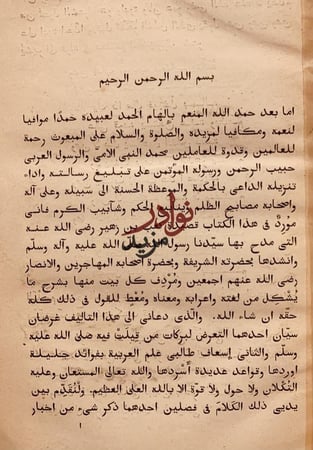 بسم الله الرحمن الرحيم
اما بعد حمد الله المنعم بإلهام الحمد لعبيده حمدًا موافيا
لنعمه ومكافيا لمزيده والصلوة والسلام على المبعوث رحمة
للعالمين وقدوة للعاملين محمد النبى الامى والرسول العربى
حبيب الرحمن ورسوله المؤتمن على تبليغ رسالته واداء
تنزيله الداعى بالحكمة والموعظة الحسنة الى سبيله وعلى آله
واصحابه مصابيح الظلم الحكم وشآبيب الكرم فانى
مُورِد فى هذا الكتاب زهير رضى الله عنه
التى مدح بها سيّدنا رسول الله عليه وآله وسلّم
وانشدها بحضرته الشريفة وبحضرة اصحابه المهاجرين والانصار
رضى الله عنهم اجمعين ومُرْدِف كل بيت منها بشرح ما
يُشْكِل من لغته واعرابه ومعناه ومُعْطٍ للقول فى ذلك كله
حقّه ان شاء الله. والذى دعانى الى هذا التأليف غرضان
سيّان احدهما التعرض لبركات من قيلت فيه صلى الله عليه
وسلّم والثانى إسعاف طالبى علم العربية بفوائد جليلة
اوردها وقواعد عديدة أسْردها والله تعالى المستعان وعليه
التُكْلان ولا حول ولا قوة الا بالله العلى العظيم. ولْنُقَدِّم بين
يدى ذلك الكلامَ فى فصلين احدهما ذكر شىء من اخبار
١
نوادر
مزيد